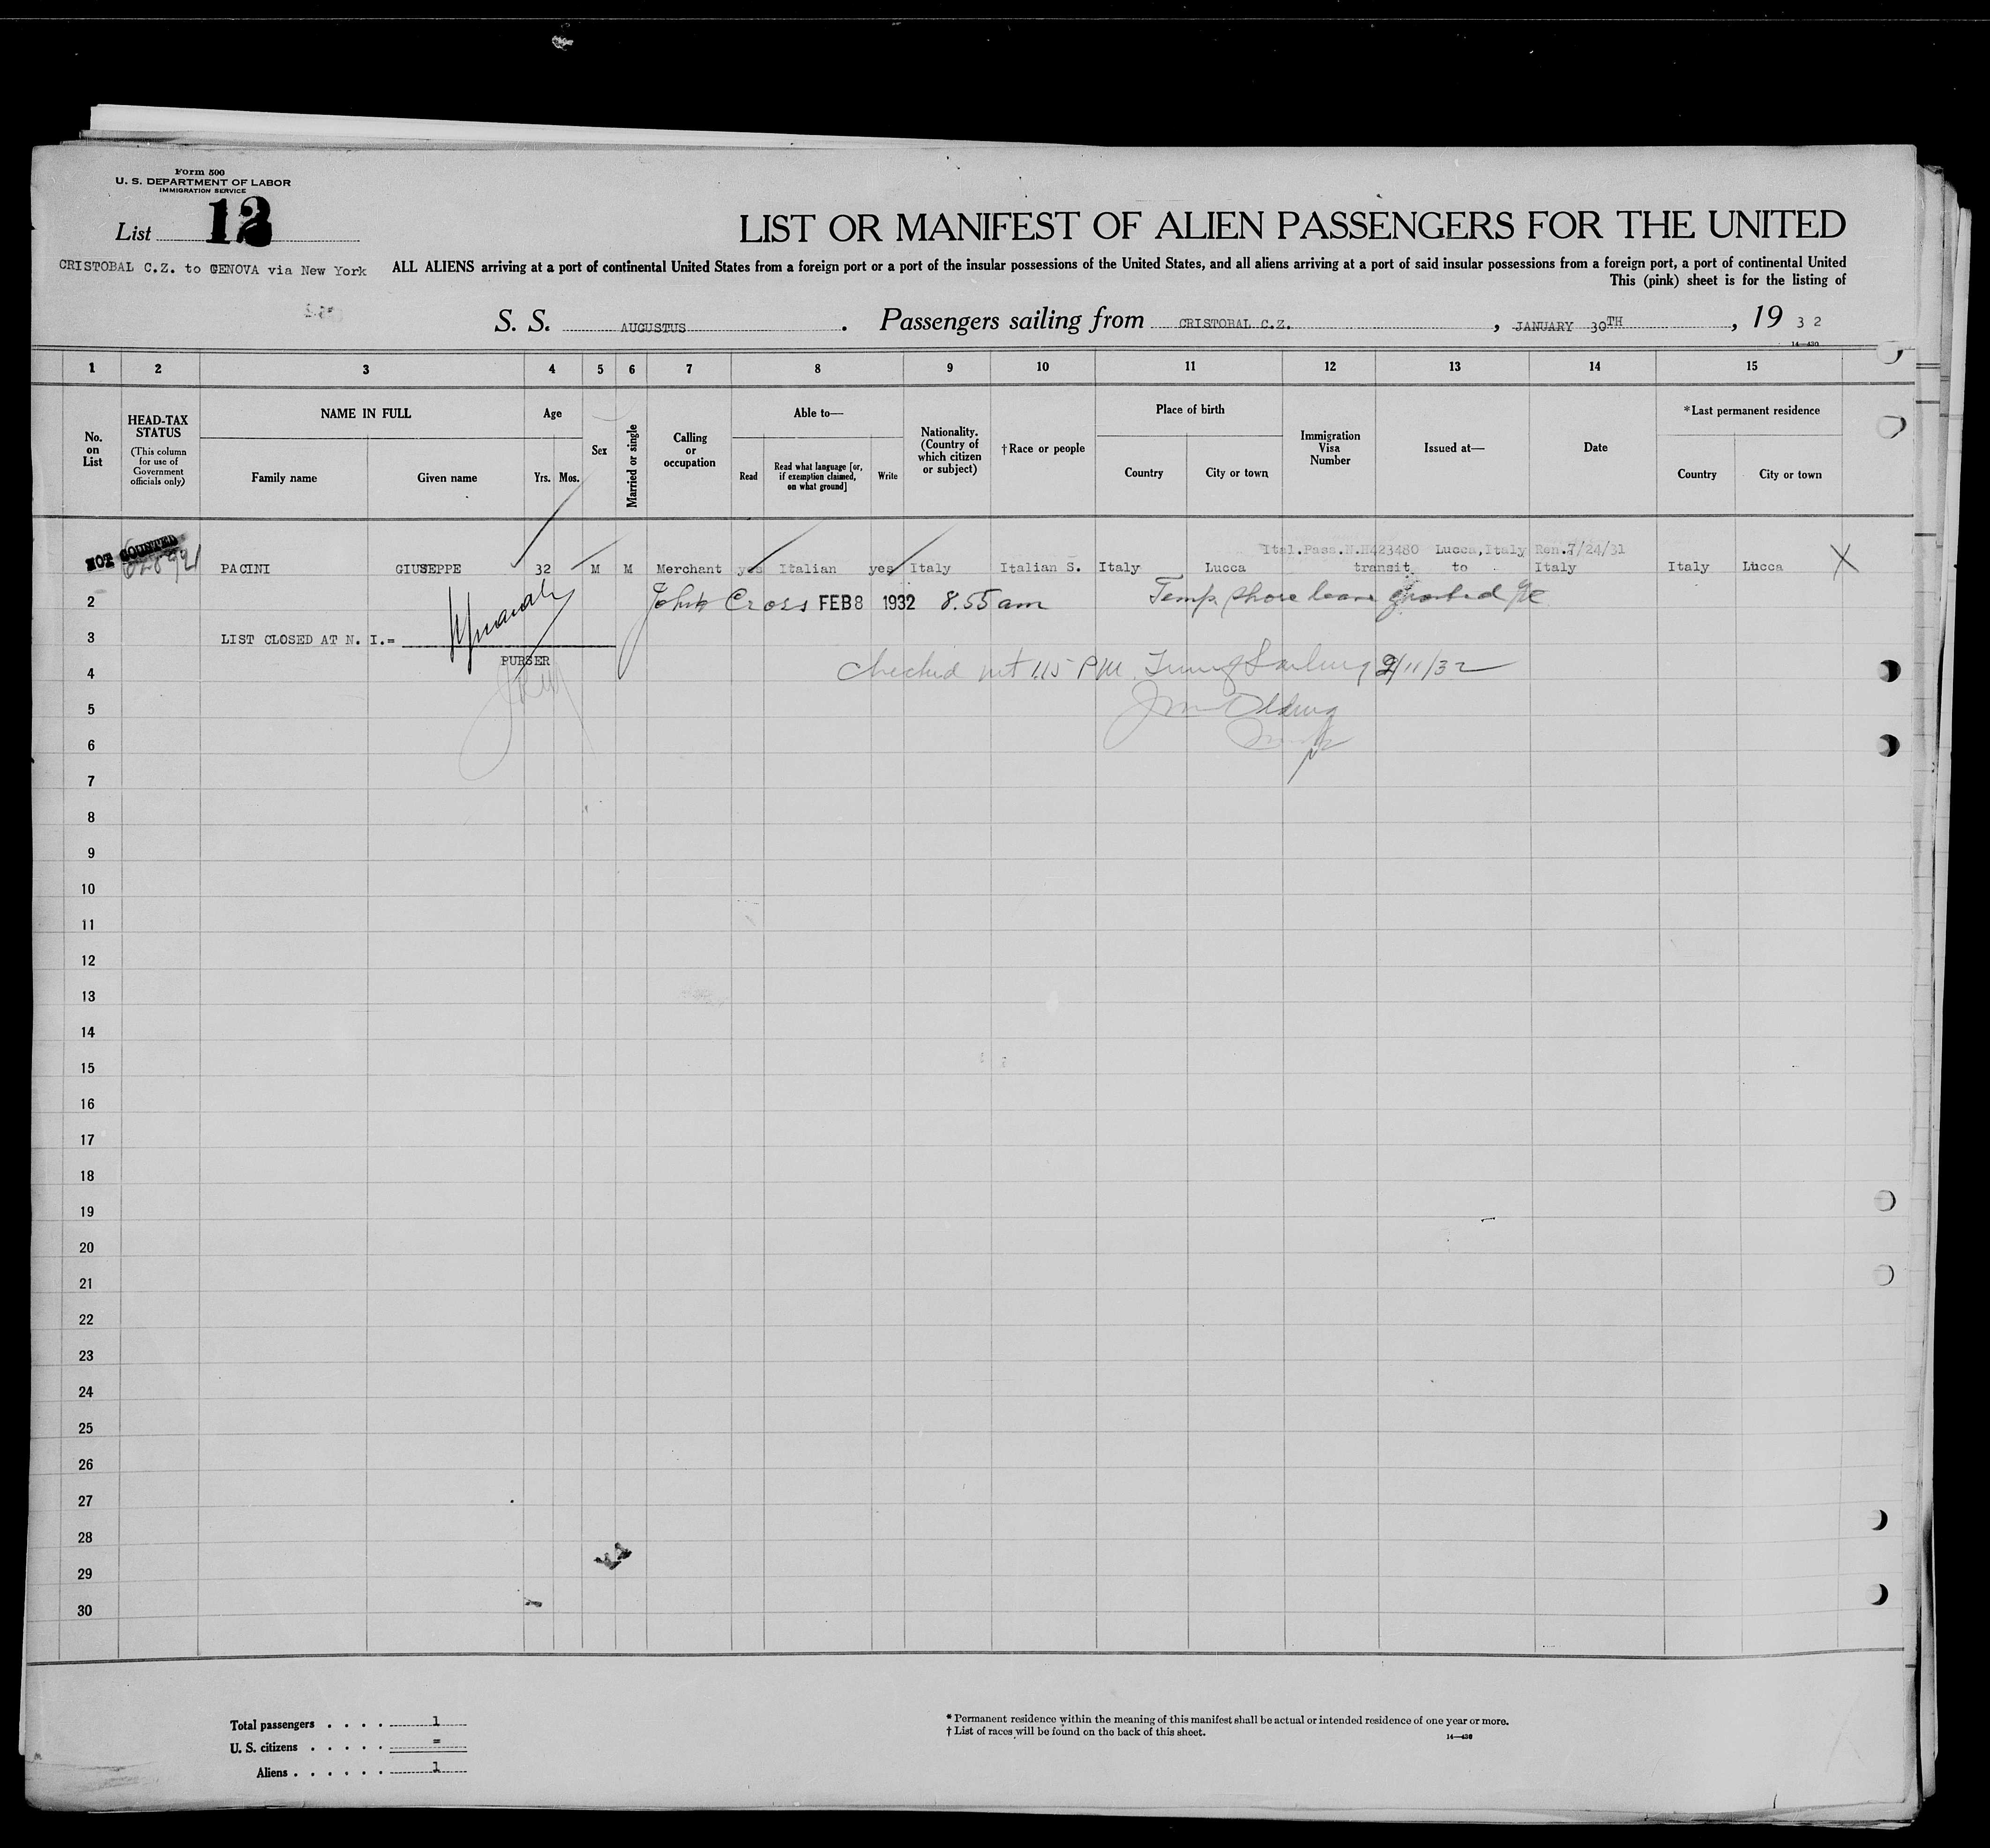 Form 500
U. S. DEPARTMENT OF LABOR
IMMIGRATION SERVICE
List
LIST OR MANIFEST OF ALIEN PASSENGERS FOR THE UNITED
CRISTOBAL C.Z. to GENOVA via New York
ALL ALIENS arriving at a port of continental United States from a foreign port or a port of the insular possessions of the United States, and all aliens arriving at a port of said insular possessions from a foreign port, a port of continental United
This (pink) sheet is for the listing of
S. S. AUGUSTUS. Passengers sailing from CRISTOBAL C.Z., JANUARY 30TH, 19 3 2
14—430
1 2 3 4 5 6 7 8 9 10 11 12 13 14 15
No. on List
HEAD-TAX STATUS
(This column for use of Government officials only)
NAME IN FULL
Family name Given name
Age
Yrs. Mos.
Sex
Married or single
Calling or occupation
Able to—
Read
Read what language [or, if exemption claimed, on what ground]
Write
Nationality. (Country of which citizen or subject)
†Race or people
Place of birth
Country City or town
Immigration Visa Number
Issued at—
Date
*Last permanent residence
Country City or town
NOT COUNTED
Ital.Pass.N.H423480 Lucca,Italy Ren.7/24/31
PACINI GIUSEPPE 32 M M Merchant yes Italian yes Italy Italian S. Italy Lucca transit to Italy Italy Lucca X
2 John Cross FEB 8 1932 8.55 am Temp. shore leave granted
3 LIST CLOSED AT N. I.=
PURSER
4 checked 1.15 PM. Time of Sailing 2/11/32
5
6
7
8
9
10
11
12
13
14
15
16
17
18
19
20
21
22
23
24
25
26
27
28
29
30
Total passengers . . . . 1
U. S. citizens . . . . . =
Aliens . . . . . . 1
* Permanent residence within the meaning of this manifest shall be actual or intended residence of one year or more.
† List of races will be found on the back of this sheet.
14—430